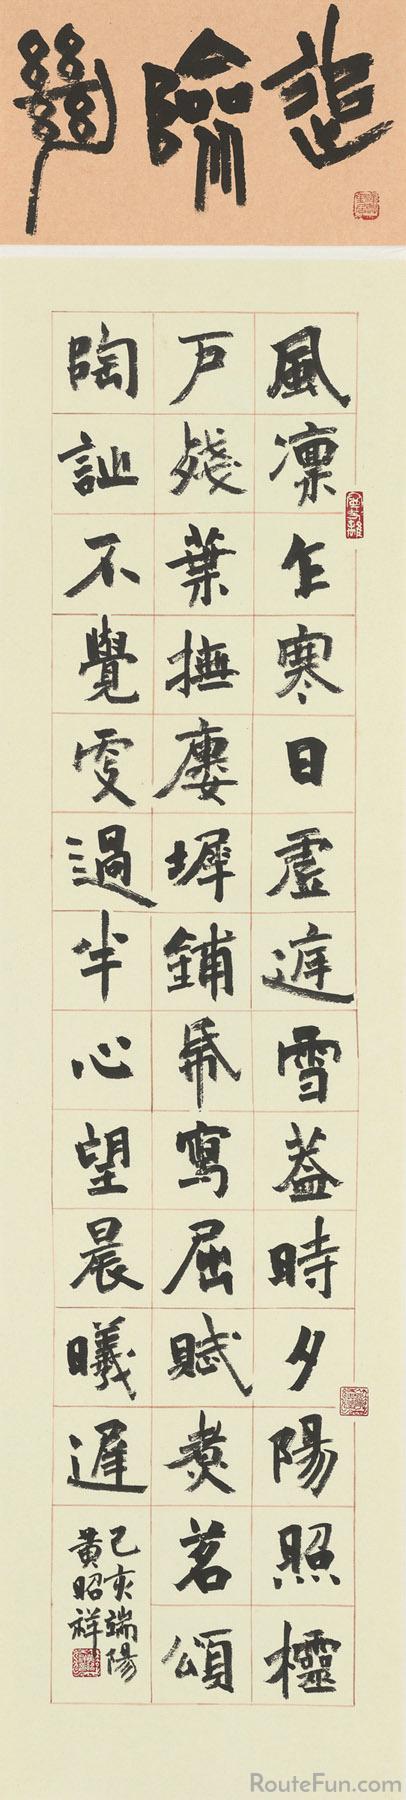 風凜乍寒日虛遲雪蓋時夕陽照欞
戶殘葉撫廔墀鋪帋寫屈賦煑茗頌
陶詎不覺雯過半心望晨曦遲
己亥端陽
黃昭祥
RouteFun.com